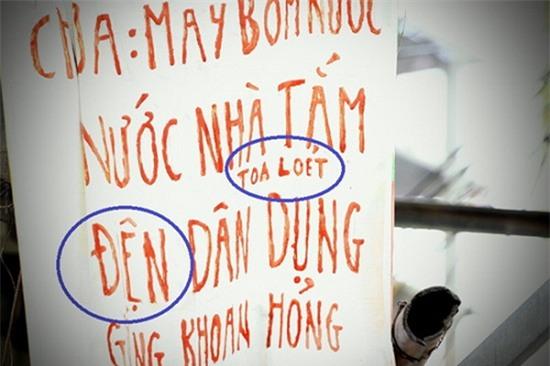 CNA: MAY BƠM NƯỚC
NƯỚC NHÀ TẤM
TOA LOÉT
ĐỆN DÂN DỤNG
GĪNG KHOAN HỔNG